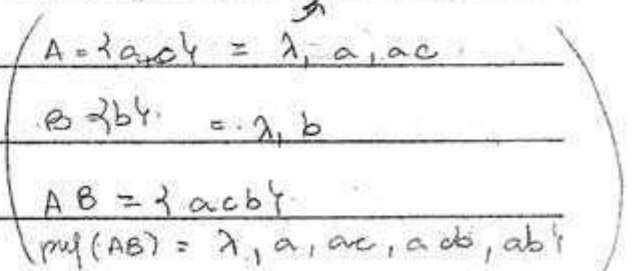 A = {a,c} = λ, a, ac
B {b} = λ, b
AB = {acb}
pref(AB) = λ, a, ac, acb, ab}